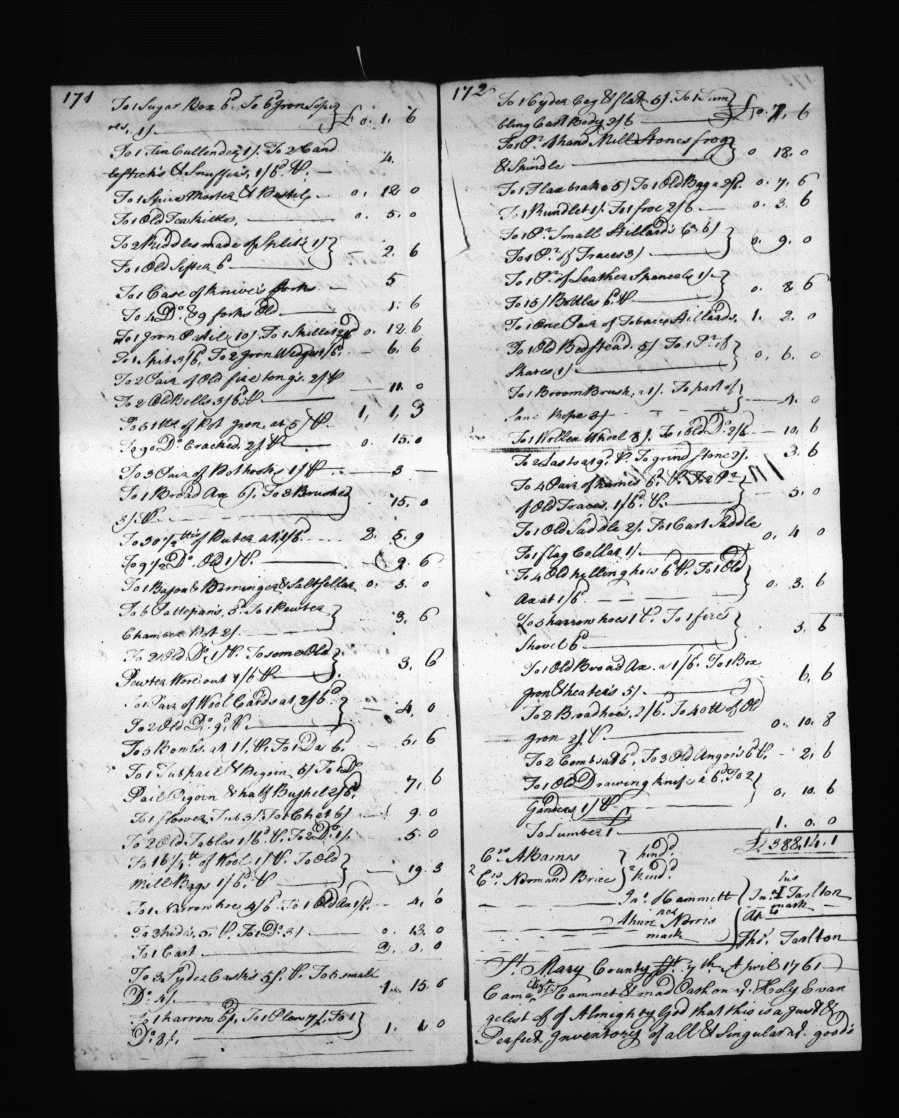 171
To 1 Sugar Box 6d. To 6 Iron
1/ } £ 0. 1. 6
To 1 Tin Cullender, 1/. To 2 Cand
lestick's & Snuffers, 1/6 P. — 4.
To 1 Spice Morter & Pestel, — 0. 12 0
To 1 Old Tea Kittle, — 0. 5. 0
To 2 Riddles made of Splits 1/ }
To 1 Old Sefter 6 } — 2. 6
To 1 Case of Knives & forks — 5
To 4 Do. & 9 forks Old — 1. 6
To 1 Iron Pistil, 10/. To 1 Skillet 2/6 0. 12 6
To 1 Spit 3/6, To 2 Iron Wedges 1/6. — 6. 6
To 2 Pair of Old fire tong's. 2/ P
To 2 Old Bells 3/6 P — 11. 0
To 51 lb of Pot Iron, at 5/ P — 1, 1, 3
To 90 Do. Cracked. 2/ P. — 0. 15. 0
To 3 Pair of Pothooks 1/ P. — 3 —
To 1 Broad Ax 6/. To 3 Brushes
3/ P. } 15. 0
To 30 1/2 lb of Puter at 1/6 — 2. 5. 9
To 9 1/2 Do. Old 1/ P. — 9. 6
To 1 Bason & Borringer & Saltsellar 0. 3. 0
To 6 Pattepan's, 5d. To 1 Pewter }
Chamber Pot 2/. } 3, 6
To 2 Old Do. 1/ P. To some Old }
Pewter Wore out 1/6 P } 3, 6
To 1 Pair of Wool Cards at 2/6 }
To 2 Old Do. 9d. P. } 4, 0
To 5 Bowls. at 1/. P. To 1 Do 6. — 5. 6
To 1 Tub pail & Pigoin, 5/ To 1 Do.
Pail Pigoin & half Bushel 2/6. 7, 6
To 1 Tub 3/. To 1 Chest 6/ 9. 0
To 2 Old Tables 1/6 P. To 2 Do. 1/. — 5. 0
To 16 1/4 lb of Wool 1/ P. To Old }
Mill Bags 1/6. P } 19. 3
To 1 Narrow hoe 4/6 To 1 Old Ax — 4, 6
To 3 5/ P, To 1 Do. 3/ — 0. 13. 0
To 1 Cart — 2. 0. 0
To 3 Syder Casks 5/ P. To 5 small
Do. 4/. 1. 15. 0
To 1 harrow 6/, To 1 Plow 7/, To 1 }
Do. 8/. } 1. 1. 0
172
To 1 Cyder Cag & flask 5/. To 1 Tum }
bling Cart Body 2/6 } £ 0. 7, 6
To 1 Pr. hand Mill Stones frog }
& Spindle } 0 18. 0
To 1 Flax brake 5/ To 1 Old Bagg 2/6. 0. 7. 6
To 1 Rundlet 1/. To 1 froe 2/6 — 0. 3. 6
To 1 Pr. Small Stillards &c. 6/ }
To 1 Pr. of Traces 3/ } 0. 9. 0
To 1 Pr. of Leather Spancels 1/. }
To 15 Bottles 6d. P } 0. 8 6
To 1 One Pair of Tobacco Stillards, 1. 2. 0
To 1 Old Bedstead. 5/ To 1 Pr. of }
Shares 1/ } 0, 6. 0
To 1 Broom Brush, 1/. To part of }
Rope 3/ } — 4. 0
To 1 Wollen Wheel 8/. To 1 Old Do. 2/6 — 10, 6
To 2 Lasts at 9d. P. To grind stone 2/. 3. 6
To 4 Pair of hames 6d. P. To 2 Pr. }
of Old Traces, 1/6. P. } 5. 0
To 1 Old Saddle 2/. To 1 Cart Saddle
To 1 flag Collar 1/. } 0. 4 0
To 4 Old hilling hoes 6d P. To 1 Old }
Ax at 1/6 } 0. 3. 6
To 3 harrow hoes 1 P. To 1 fire }
Shovel 6d } 3, 6
To 1 Old Broad Ax. a 1/6. To 1 Box
Iron & heaters 5/ — 6, 6
To 2 Broad hoes, 2/6. To 40 lb of Old
Iron 2/ P. 0. 10. 8
To 2 Combs at 6d. To 3 Old Augor's 6d P. — 2, 6
To 1 Old Drawing knife a 6d. To 2 }
Ganders 1/ P. } 0, 10. 6
To Lumber 1 — 1. 0. 0
£ 388. 14. 1
Crs. A Barnes } kind.
2 Crs. Normand Brice } kind.
Jno. Hammett
Norris
mark
his
Jno. Tarlton
mark
Thos. Tarlton
St. Mary County Sst. 7th. April 1761
Came Hammet & mad Oath on ye. Holy Evan
gelest of of Almighty God that this is a Just &
Perfect Inventory of all & Singular ye. goods